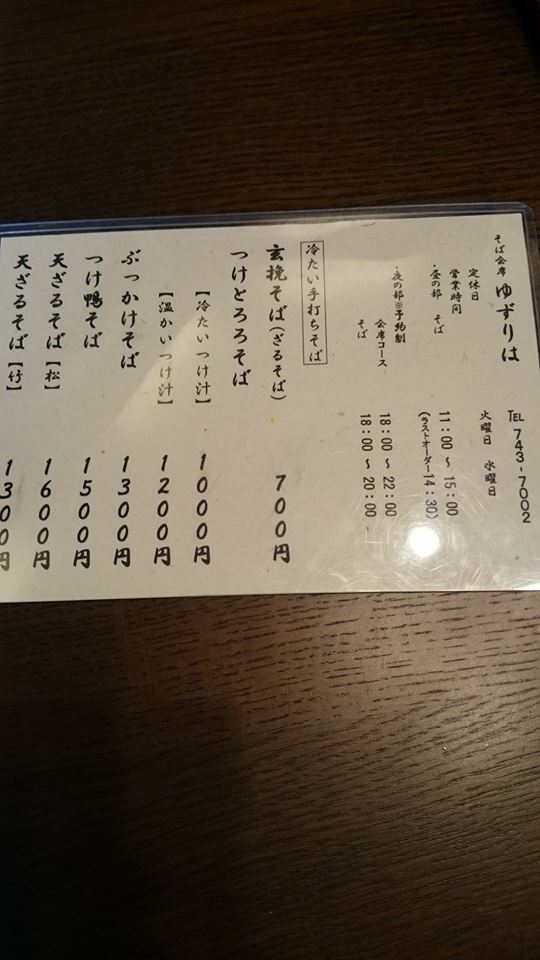 そば会席 ゆずりは
TEL 743-7002
定休日 火曜日 水曜日
営業時間
・昼の部 そば 11:00 〜 15:00
(ラストオーダー14:30)
・夜の部※予約制
会席コース 18:00 〜 22:00
そば 18:00 〜 20:00
冷たい手打ちそば
玄挽そば(ざるそば) 700円
つけとろろそば
【冷たいつけ汁】 1000円
【温かいつけ汁】 1200円
ぶっかけそば 1300円
つけ鴨そば 1500円
天ざるそば【松】 1600円
天ざるそば【竹】 1300円